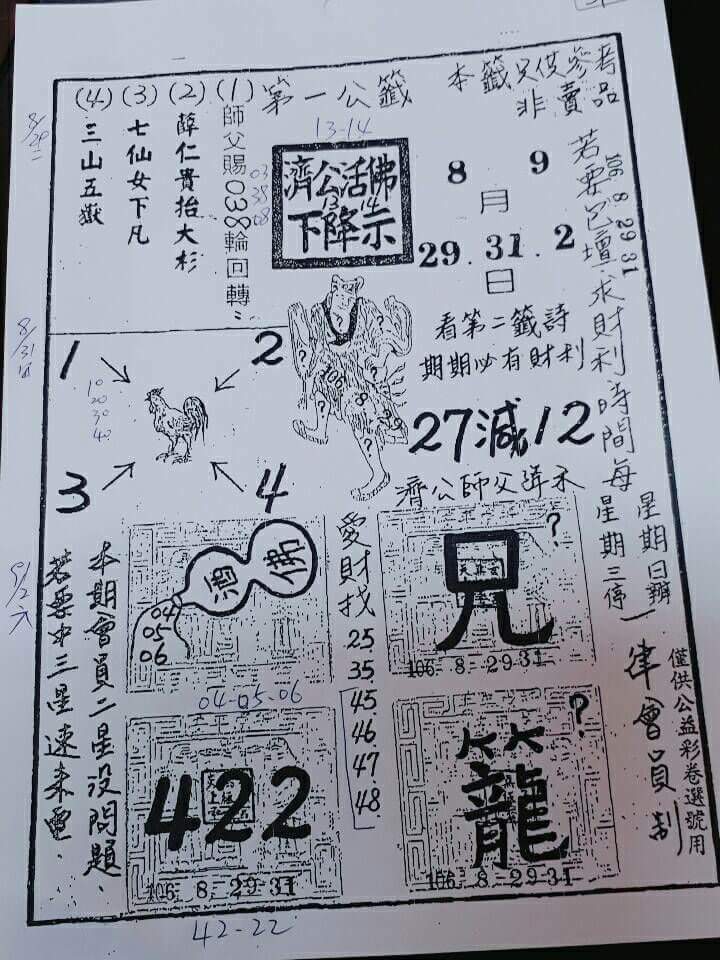 第一公籤
本籤只供參考
非賣品
(1)師父賜038輪回轉
(2)薛仁貴抬大杉
(3)七仙女下凡
(4)三山五嶽
13-14
濟公活佛
13 14
下降示
03
38
08
8 9
月
29.31.2
日
106 8 29 31
若要包壇求財利時間每
星期日辦
星期三停
一律會員制
僅供公益彩卷選號用
看第二籤詩
期期必有財利
27減12
濟公師父降示
? ? ? ?
106 8 29
1
2
3
4
10
20
30
40
8/29 二
8/31 四
9/2 六
佛
04
05
06
04-05-06
愛財找
25
35
45
46
47
48
兄
?
106.8-29-31
422
106 8-29-31
42-22
籠
?
106 8-29-31
本期會員二星沒問題
若要中三星速來電